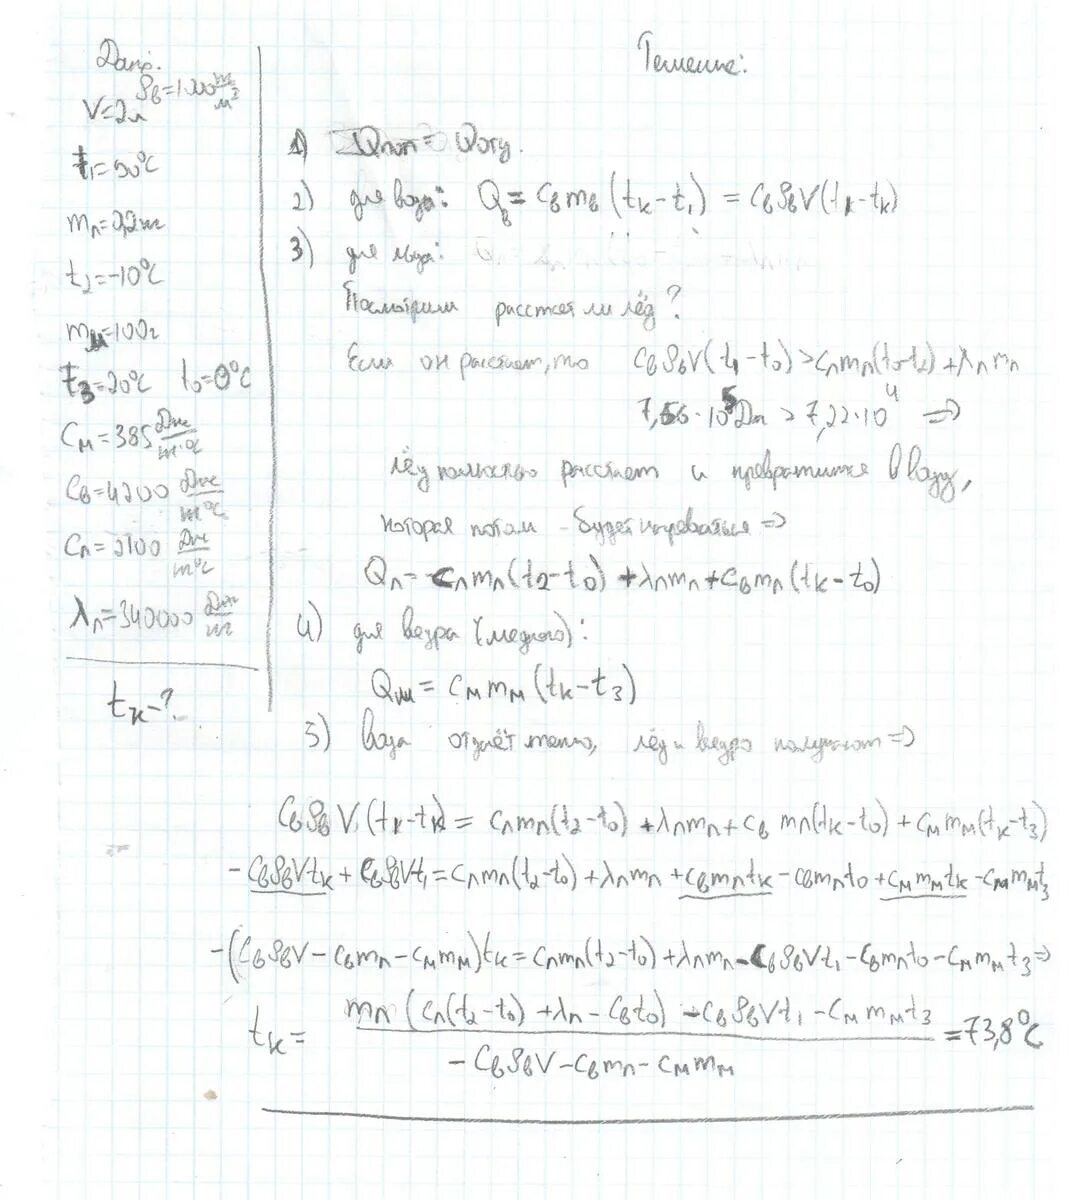 Дано:
ρв=1000 кг/м³
V=2л
t₁=90°C
mл=0,2кг
t₂=-10°C
mм=100г
t₃=20°C t₀=0°C
Cм=385 Дж/кг·°C
Cв=4200 Дж/кг°C
Cл=2100 Дж/кг°C
λл=340000 Дж/кг
tк-?
Решение:
1) Qпол = Qотд.
2) для воды: Qв = Cвmв(tк-t₁) = CвρвV(tк-tк)
3) для льда:
Посмотрим расстает ли лёд?
Если он расстает, то CвρвV(t₁-t₀)>Cлmл(t₀-t₂)+λлmл
7,56·10⁵Дж > 7,22·10⁴ =>
лёд полностью расстает и превратится в воду,
которая потом будет нагреваться =>
Qл = Cлmл(t₂-t₀)+λлmл+Cвmл(tк-t₀)
4) для ведра (медного):
Qм = Cмmм(tк-t₃)
5) вода отдаёт тепло, лёд и ведро получают =>
CвρвV(tк-tк)= Cлmл(t₂-t₀)+λлmл+Cв mл(tк-t₀)+Cмmм(tк-t₃)
-CвρвVtк+CвρвVt₁=Cлmл(t₂-t₀)+λлmл+Cвmлtк-Cвmлt₀+Cмmмtк-Cмmмt₃
-(CвρвV-Cвmл-Cмmм)tк=Cлmл(t₂-t₀)+λлmл-CвρвVt₁-Cвmлt₀-Cмmмt₃=>
tк= mл(Cл(t₂-t₀)+λл-Cвt₀)-CвρвVt₁-Cмmмt₃ / -CвρвV-Cвmл-Cмmм =73,8°C